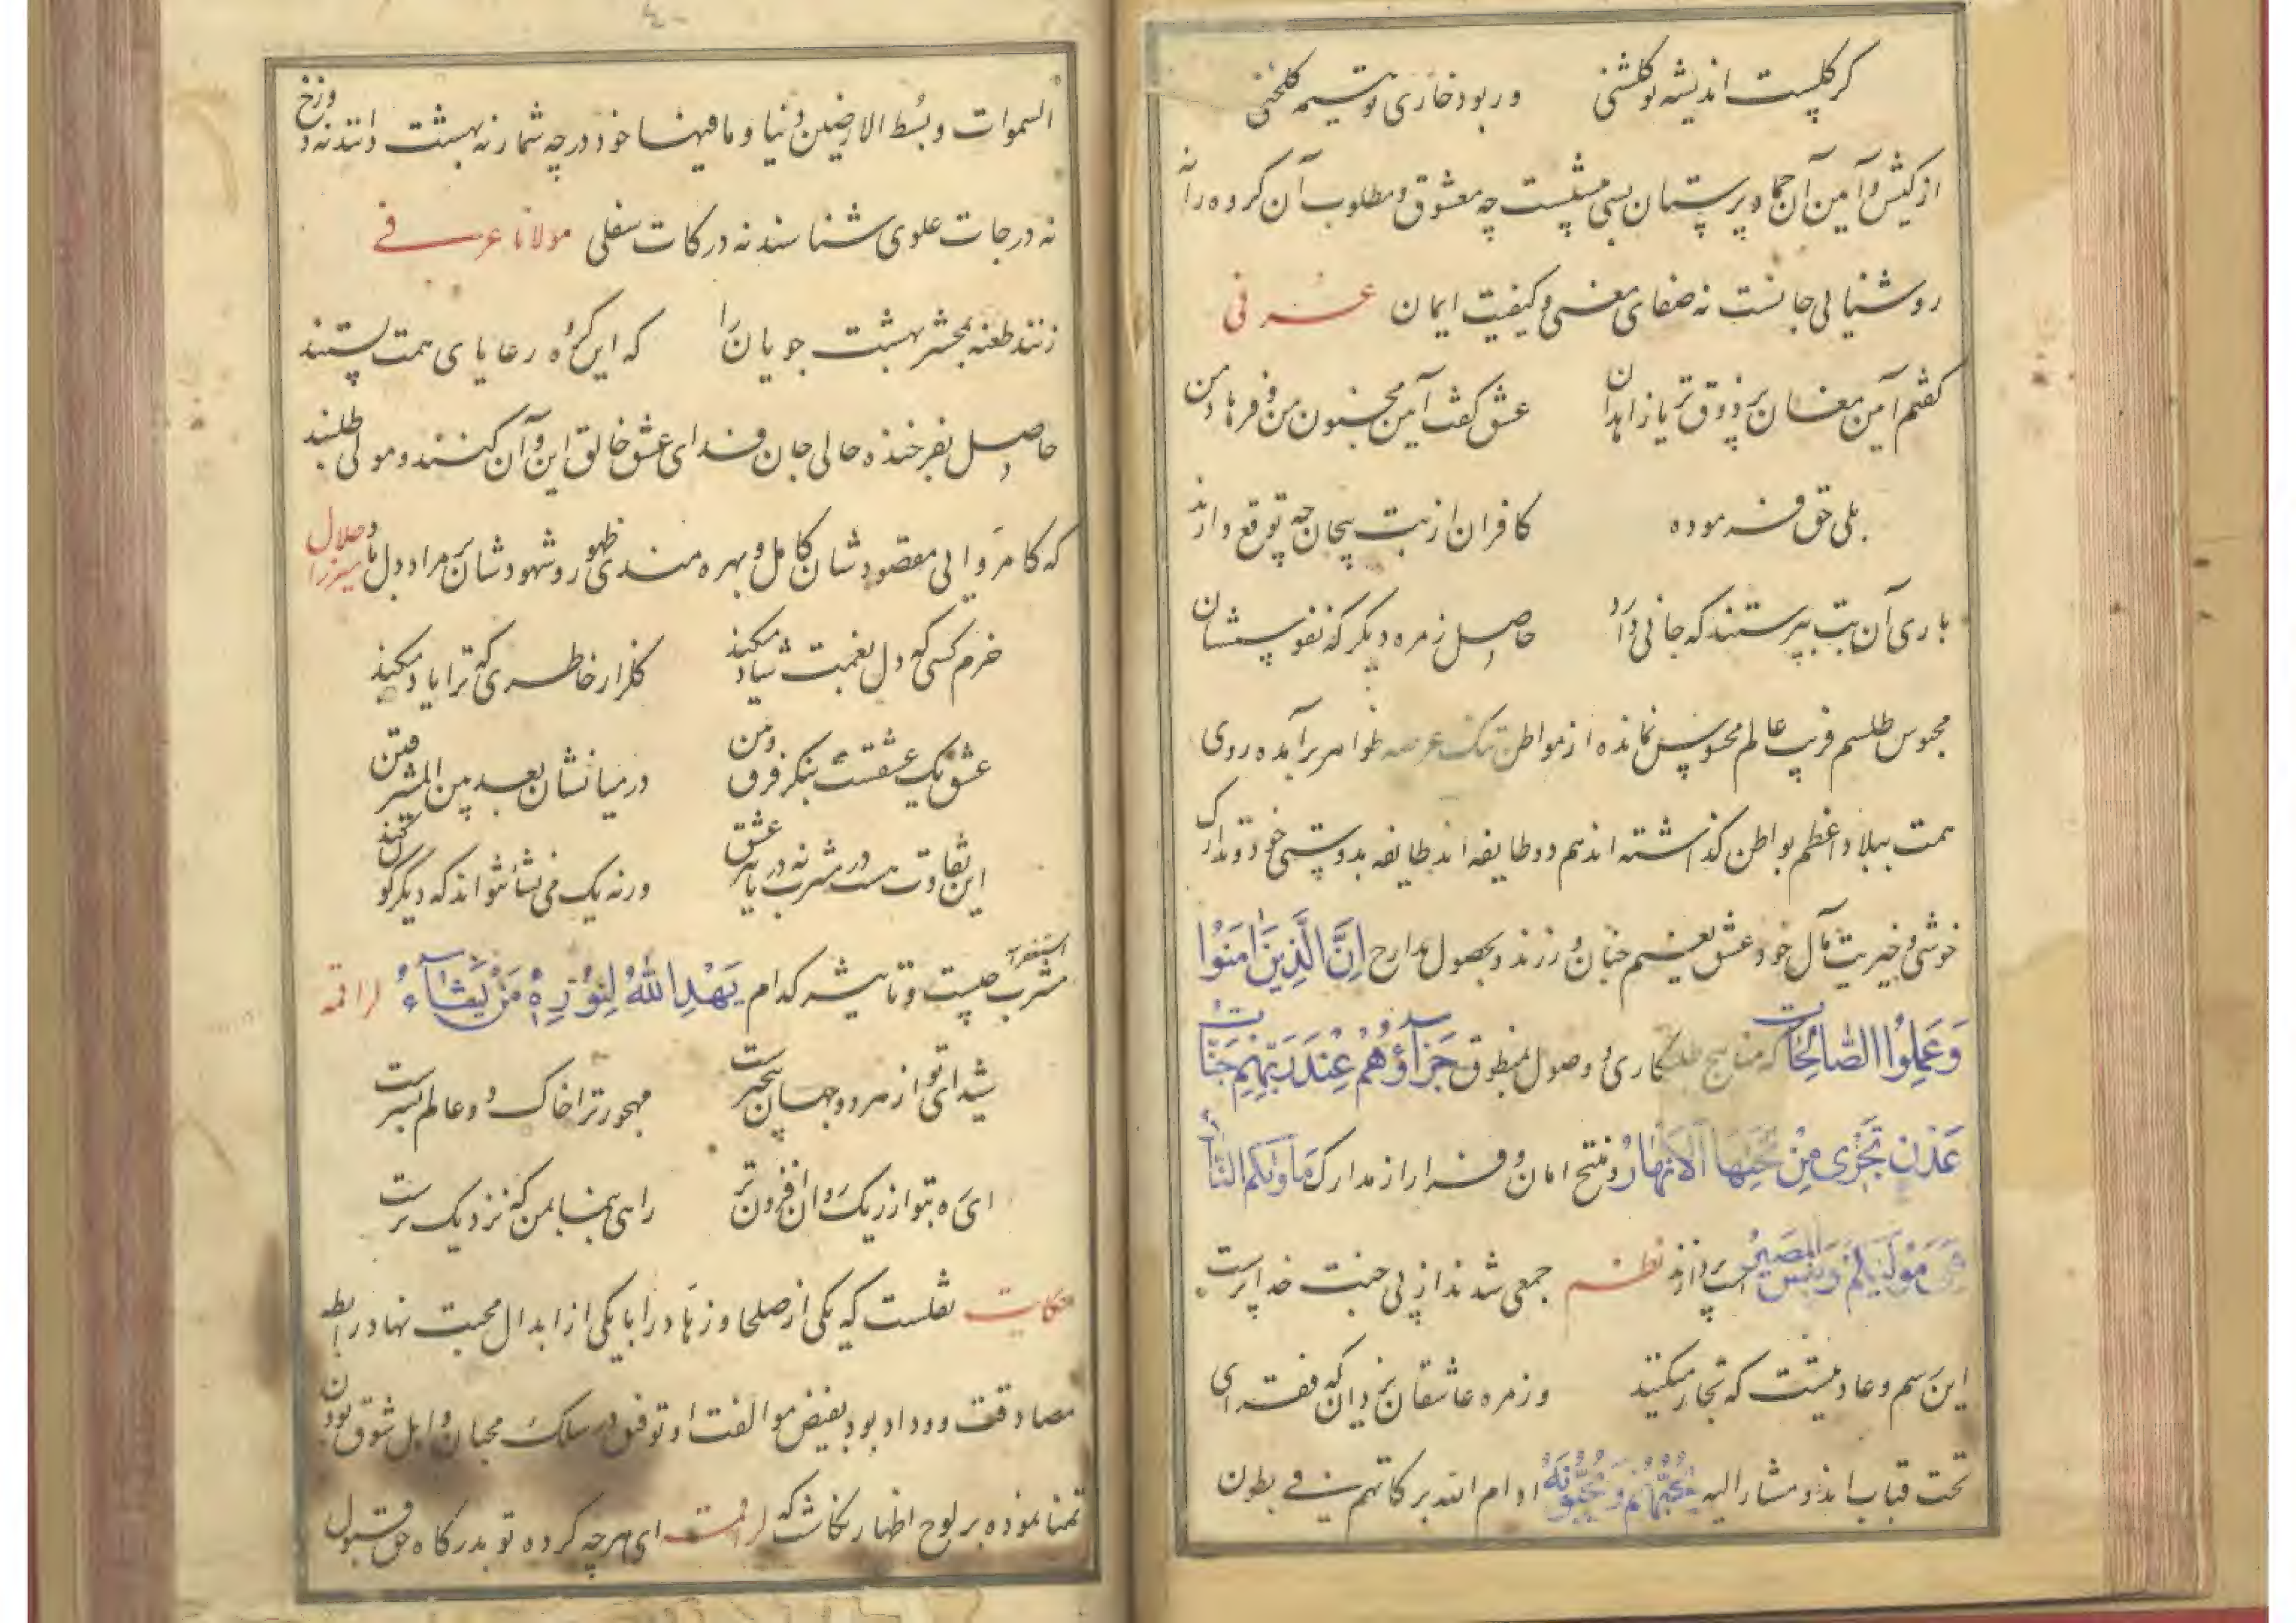 گر گلست اندیشه تو گلشنی ور بود خاری تو هیمه گلخنی
از کیش و آیین آن جماد پرستان بسی نیست چه معشوق و مطلوب آن گروه را نه
روشنیائی جانست نه صفای معنی و کیفیت ایمان عرفی
گفتم آیین مغان پر ذوق تر یا زاهدان عشق گفت آیین مجنون من و فرهاد من
بلی حق فرموده کافران از بت بیجان چه توقع دارند
باری آن بت بپرستند که جانی دارد حاصل زمره دیگر که نفوسشان
محبوس طلسم فریب عالم محسوس نمانده از مواطن تنک عرصه ظواهر برآمده روی
همت ببلاد اعظم بواطن گذاشته اند هم دو طایفه اند طایفه بدوستی خود و تدارک
خوشی و خیریت مآل خود عشق نعیم جنان ورزند و بحصول مدارج اِنَّ الَّذینَ اٰمَنُوا
وَعَمِلُوا الصّالِحاتِ که مناهج کاری و وصول بمنطوق جَزآؤُهُم عِندَ رَبِّهِم جَنّاتُ
عَدْنٍ تَجْری مِنْ تَحْتِهَا الاَنْهارُ و فتح امان و فرار از مدارک مَاْویٰکُمُ النّارُ
هِیَ مَوْلیٰکُمْ وَبِئْسَ الْمَصیرُ پردازند نظم جمعی شدند از پی جنت خداپرست
این رسم و عادتیست که تجار میکنند و زمره عاشقان یزدان که فقرای
تحت قباب اند و مشار الیه یُحِبُّهُمْ وَیُحِبُّونَهُ ادام الله برکاتهم فی بطون
السموات و بسُط الارضین دنیا و ما فیها خود در چه شمار نه بهشت دانند نه دوزخ
نه درجات علوی شناسند نه درکات سفلی مولانا عرفی
زنند طعنه بمحشر بهشت جویان را که این گروه رعایای همت پستند
حاصل بفرخنده حالی جان فدای عشق خالق این و آن کنند و مولی طلبند
که کامروائی مقصودشان کامل و بهره مندی ظهور و شهودشان بر مراد دل ها میرزا جلال
خرم کسی که دل بغمت شاد میکند گلزار خاطری که ترا یاد میکند
عشق یک عشقست بنگر فرق ومن در میانشان بعد بین المشرقین
این تفاوت هست در مشرب نه در تاثیر عشق ورنه یک می نشأ نتواند که دیگرگون کند
استغفر الله مشرب چیست و تاثیر کدام یَهْدِی اللهُ لِنُورِهٖ مَنْ یَشآءُ لراقمه
شیدای تو از هر دو جهان بیخبرست مهجور ترا خاک دو عالم بسرست
ای ره بتو از ریک روان افزون تر راهی بنما بمن که نزدیک ترست
حکایت نقلست که یکی از صلحا و زهاد را با یکی از ابدال محبت نهاد رابطه
مصادقت و وداد بود بفیض موالفت او توفیق در سلک محبان و اهل شوق بودن
تمنا نموده بر لوح اظهار نگاشت که لراقمه ای هر چه کرده تو بدرگاه حق قبول